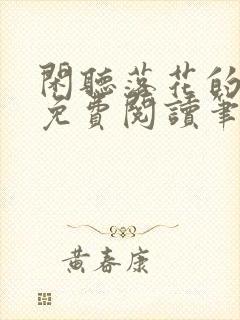 閑聽落花的
免費閱讀筆
黃春康